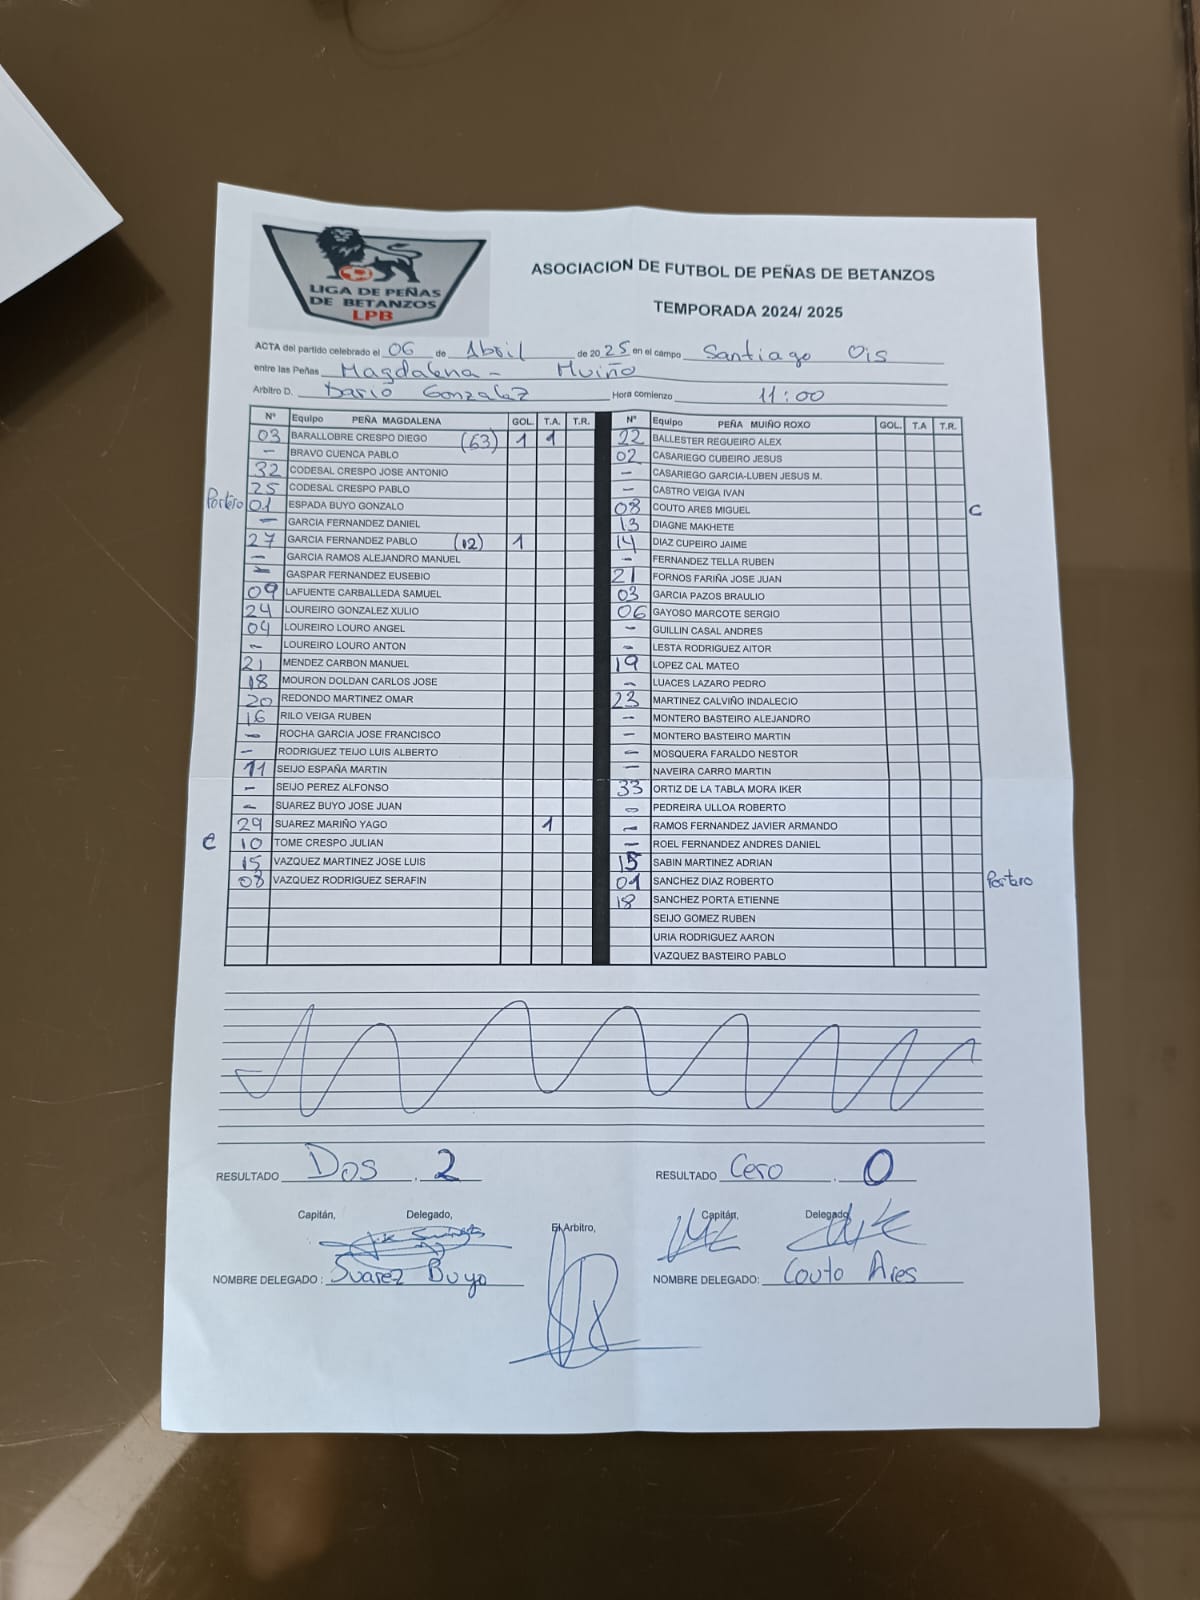 LIGA DE PEÑAS
DE BETANZOS
LPB
ASOCIACION DE FUTBOL DE PEÑAS DE BETANZOS
TEMPORADA 2024/ 2025
ACTA del partido celebrado el 06 de Abril de 2025 en el campo Santiago Ois
entre las Peñas Magdalena - Muiño
Arbitro D. Dario Gonzalez Hora comienzo 11:00
Nº Equipo PEÑA MAGDALENA GOL. T.A. T.R.
03 BARALLOBRE CRESPO DIEGO (63) 1 1
- BRAVO CUENCA PABLO
32 CODESAL CRESPO JOSE ANTONIO
25 CODESAL CRESPO PABLO
Portero 01 ESPADA BUYO GONZALO
- GARCIA FERNANDEZ DANIEL
27 GARCIA FERNANDEZ PABLO (12) 1
- GARCIA RAMOS ALEJANDRO MANUEL
- GASPAR FERNANDEZ EUSEBIO
09 LAFUENTE CARBALLEDA SAMUEL
24 LOUREIRO GONZALEZ XULIO
04 LOUREIRO LOURO ANGEL
- LOUREIRO LOURO ANTON
21 MENDEZ CARBON MANUEL
18 MOURON DOLDAN CARLOS JOSE
20 REDONDO MARTINEZ OMAR
16 RILO VEIGA RUBEN
- ROCHA GARCIA JOSE FRANCISCO
- RODRIGUEZ TEIJO LUIS ALBERTO
11 SEIJO ESPAÑA MARTIN
- SEIJO PEREZ ALFONSO
- SUAREZ BUYO JOSE JUAN
29 SUAREZ MARIÑO YAGO 1
C 10 TOME CRESPO JULIAN
15 VAZQUEZ MARTINEZ JOSE LUIS
08 VAZQUEZ RODRIGUEZ SERAFIN
Nº Equipo PEÑA MUIÑO ROXO GOL. T.A T.R.
22 BALLESTER REGUEIRO ALEX
02 CASARIEGO CUBEIRO JESUS
- CASARIEGO GARCIA-LUBEN JESUS M.
- CASTRO VEIGA IVAN
08 COUTO ARES MIGUEL C
13 DIAGNE MAKHETE
14 DIAZ CUPEIRO JAIME
- FERNANDEZ TELLA RUBEN
21 FORNOS FARIÑA JOSE JUAN
03 GARCIA PAZOS BRAULIO
06 GAYOSO MARCOTE SERGIO
- GUILLIN CASAL ANDRES
- LESTA RODRIGUEZ AITOR
19 LOPEZ CAL MATEO
- LUACES LAZARO PEDRO
23 MARTINEZ CALVIÑO INDALECIO
- MONTERO BASTEIRO ALEJANDRO
- MONTERO BASTEIRO MARTIN
- MOSQUERA FARALDO NESTOR
- NAVEIRA CARRO MARTIN
33 ORTIZ DE LA TABLA MORA IKER
- PEDREIRA ULLOA ROBERTO
- RAMOS FERNANDEZ JAVIER ARMANDO
- ROEL FERNANDEZ ANDRES DANIEL
15 SABIN MARTINEZ ADRIAN
01 SANCHEZ DIAZ ROBERTO Portero
18 SANCHEZ PORTA ETIENNE
SEIJO GOMEZ RUBEN
URIA RODRIGUEZ AARON
VAZQUEZ BASTEIRO PABLO
RESULTADO Dos . 2 RESULTADO Cero . 0
Capitán, Delegado, El Arbitro, Capitán, Delegado,
NOMBRE DELEGADO : Suarez Buyo NOMBRE DELEGADO: Couto Ares